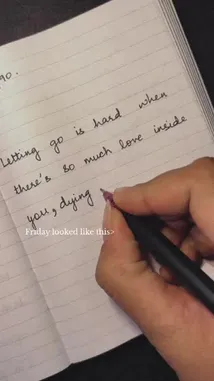 90.
Letting go is hard when
there's so much love inside
you, dying
Friday looked like this>